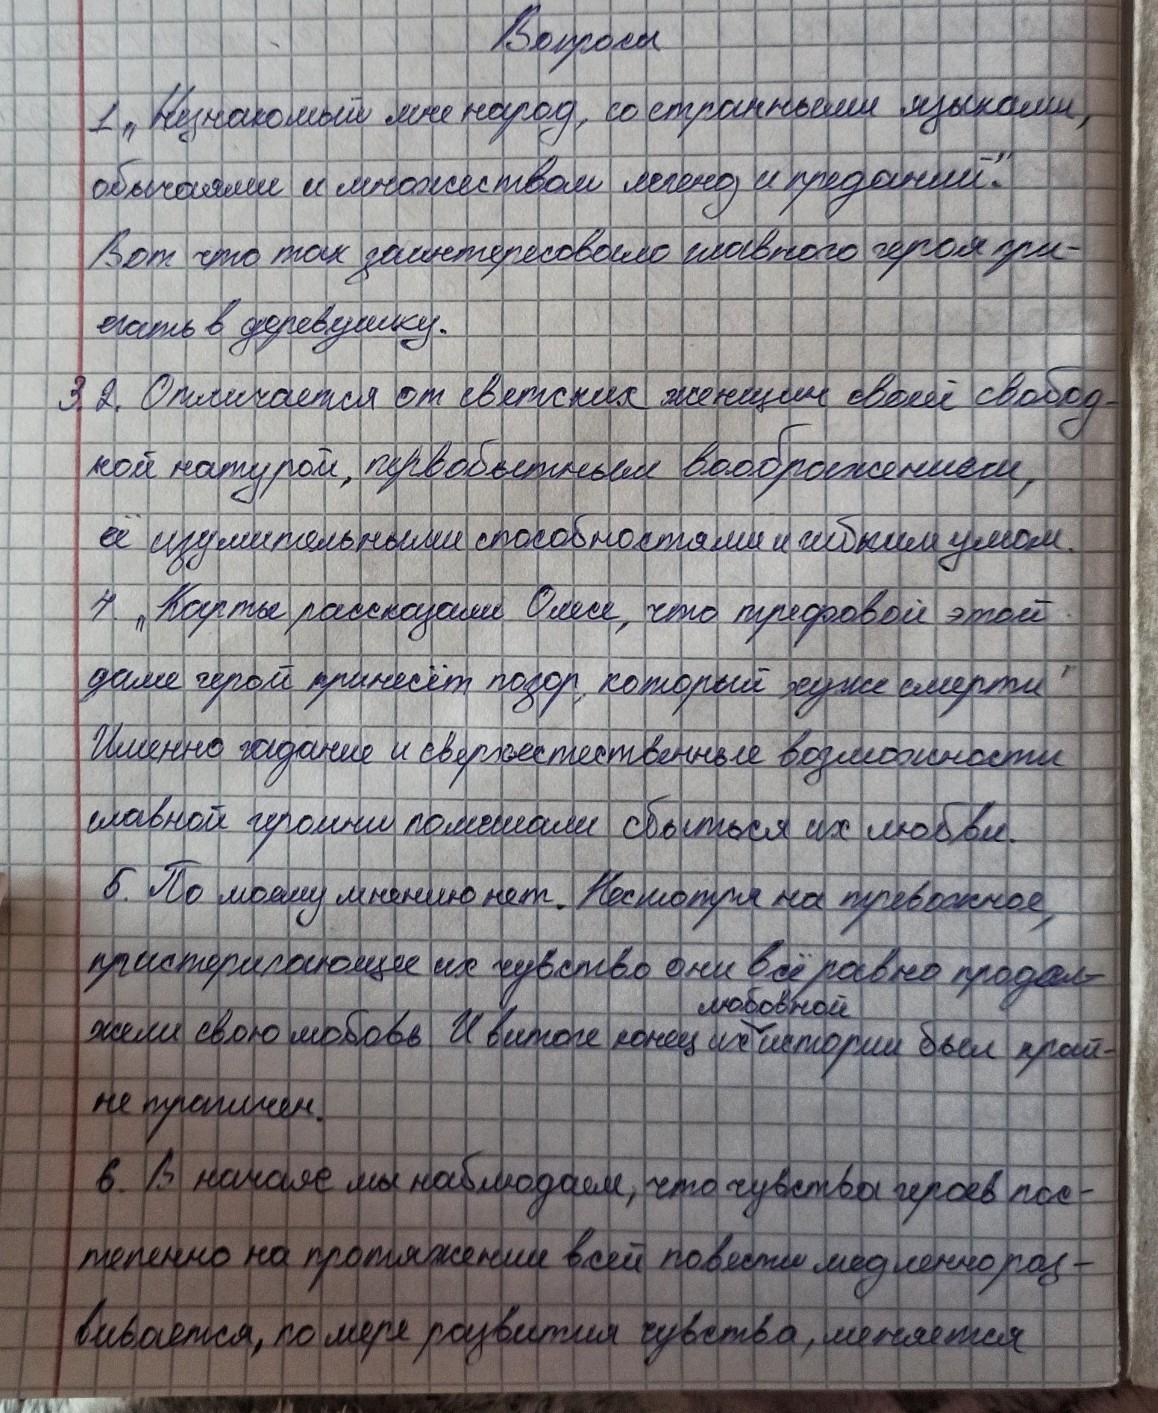 Вопросы
1. „Незнакомый мне народ, со странными языками,
обычаями и множеством легенд и преданий."
Вот что так заинтересовало главного героя при-
ехать в деревушку.
3. 2. Отличается от светских женщин своей свобод-
ной натурой, первобытным воображением,
её изумительными способностями и гибким умом.
4. „Карты рассказали Олесе, что трефовой этой
даме герой принесёт позор, который хуже смерти"
Именно гадание и сверхестественные возможности
главной героини помешали сбыться их любви.
5. По моему мнению нет. Несмотря на тревожное,
пристерегающие их чувство они всё равно продол-
любовной
жили свою любовь И в итоге конец их истории был край-
не трагичен.
6. В начале мы наблюдаем, что чувства героев пос-
тепенно на протяжении всей повести медленно раз-
вивается, по мере развития чувства, меняется